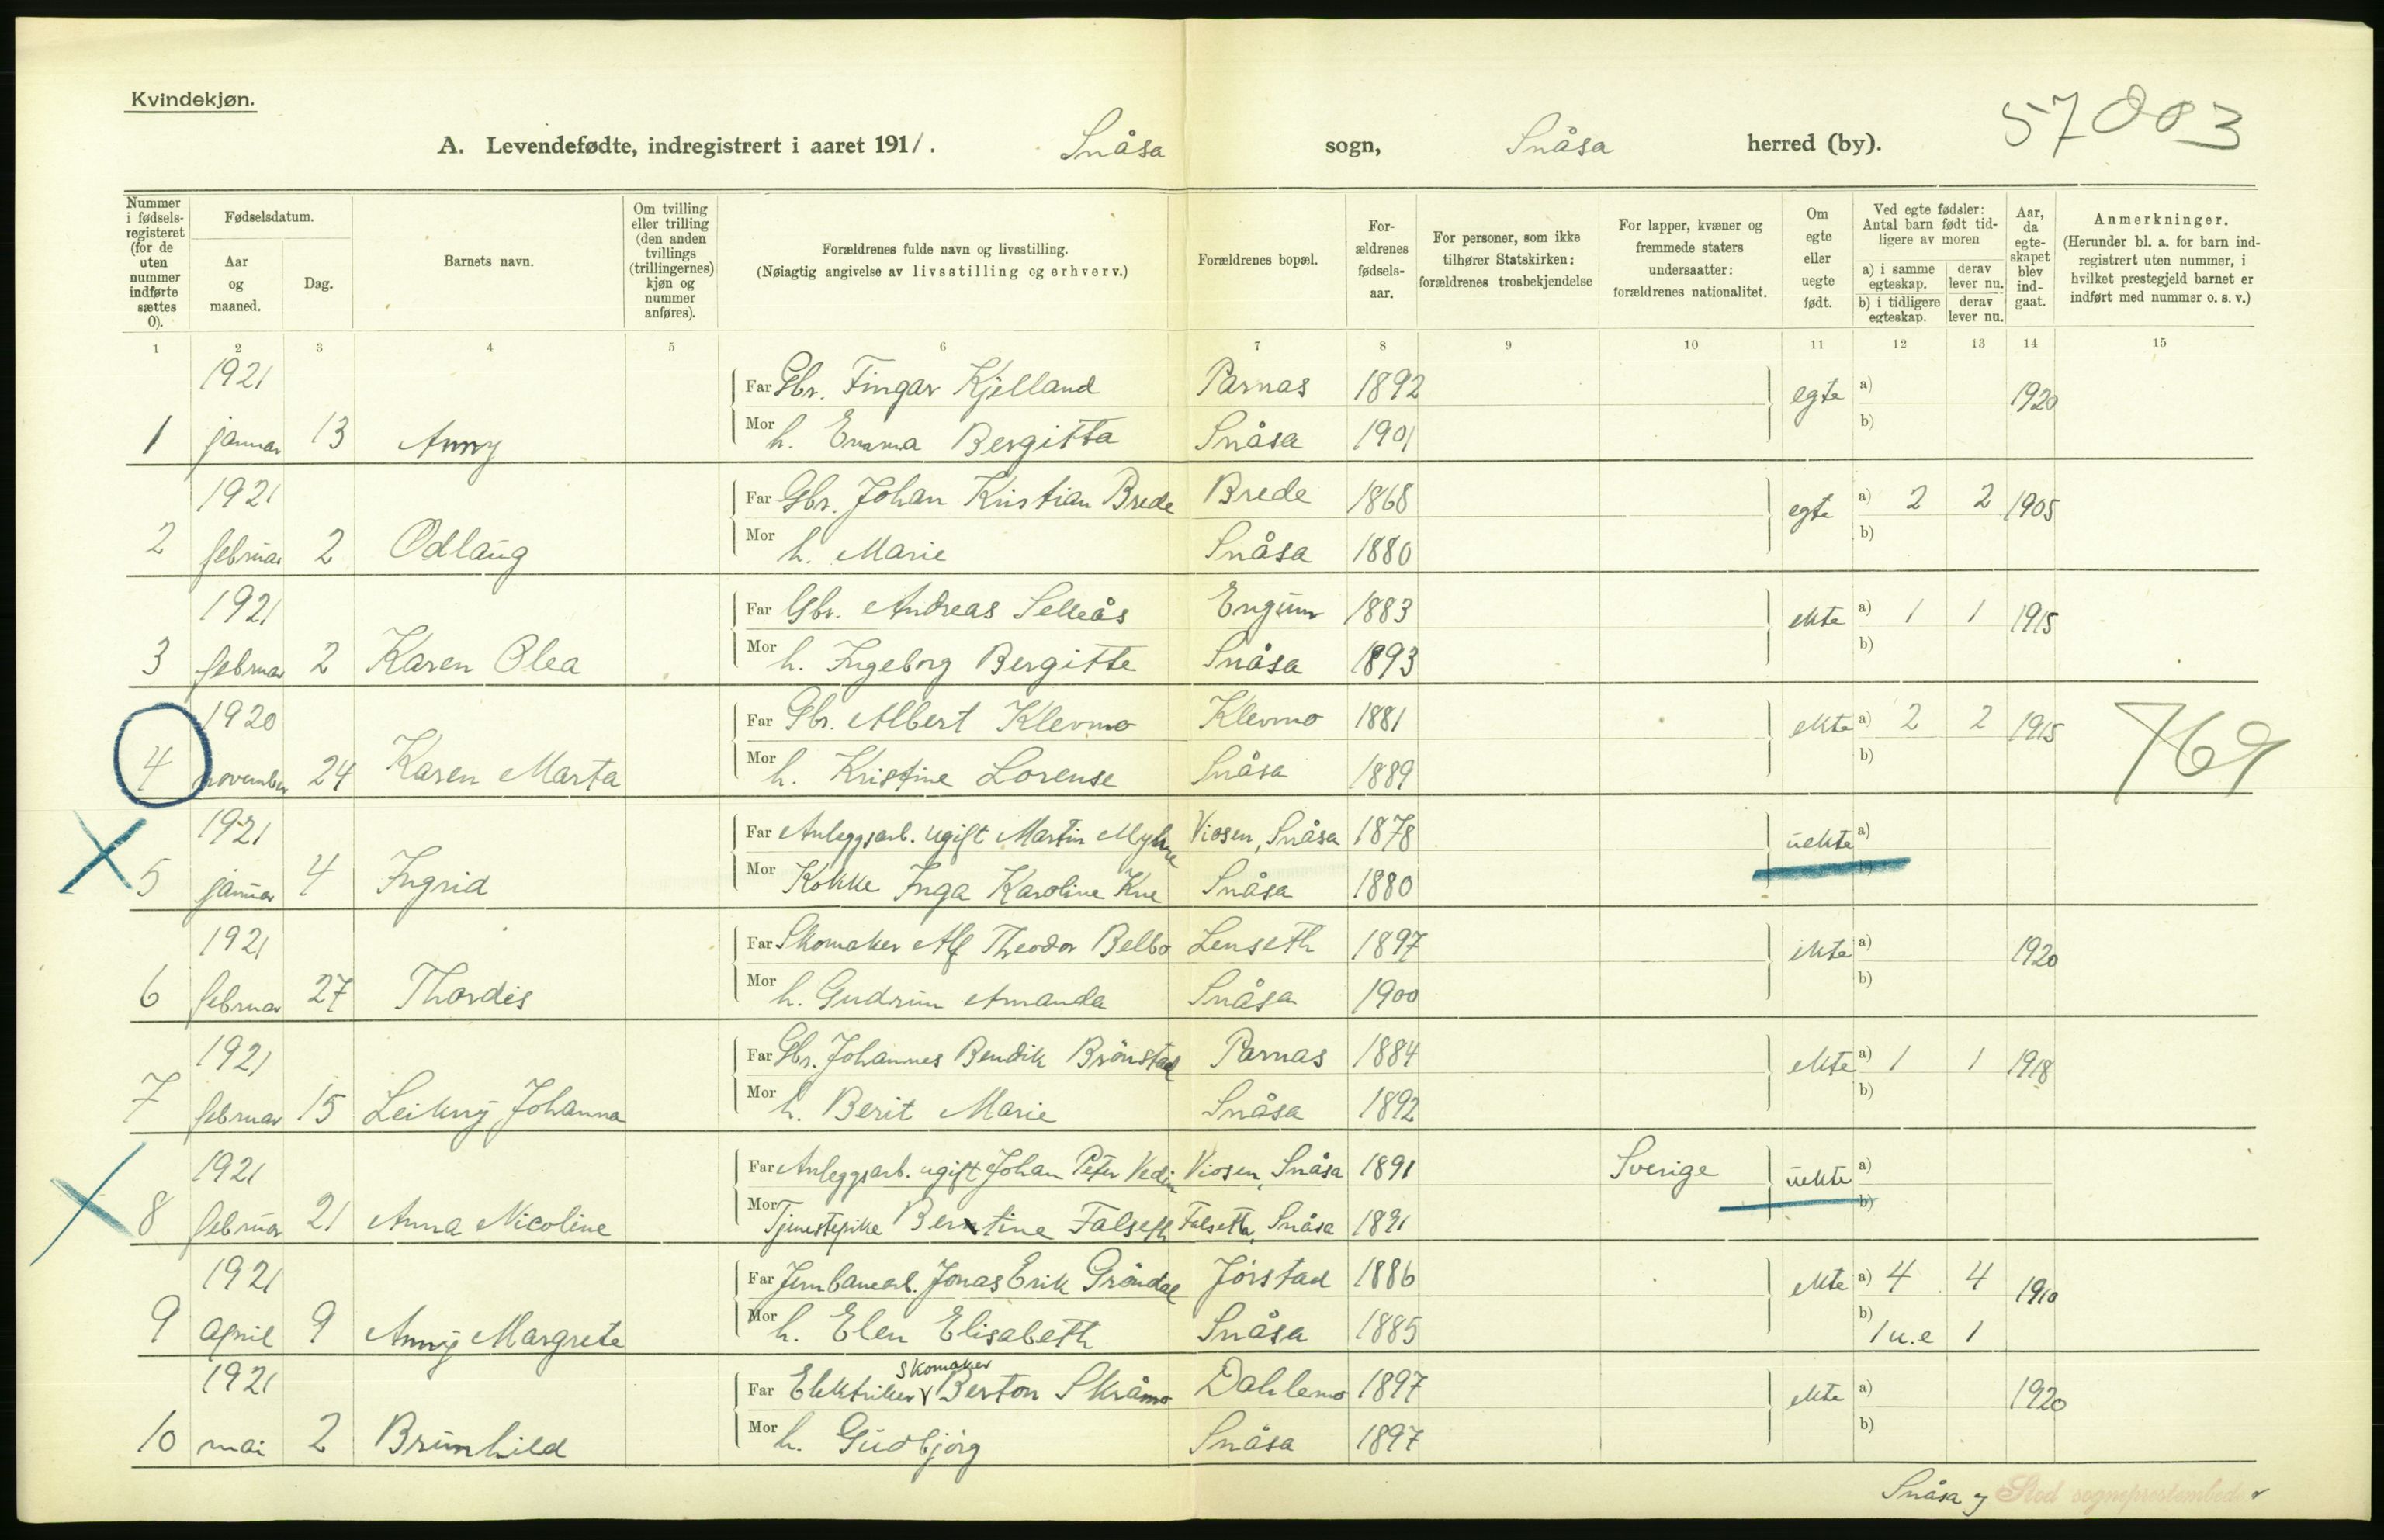 Kvindekjøn.
57083
A. Levendefødte, indregistrert i aaret 1911. Snåsa sogn, Snåsa herred (by).
Nummer i fødsels-registeret (for de uten nummer indførte sættes 0).
Fødselsdatum.
Aar og maaned.
Dag.
Barnets navn.
Om tvilling eller trilling (den anden tvillings (trillingernes) kjøn og nummer anføres).
Forældrenes fulde navn og livsstilling.
(Nøiagtig angivelse av livsstilling og erhverv.)
Forældrenes bopæl.
For-ældrenes fødsels-aar.
For personer, som ikke tilhører Statskirken: forældrenes trosbekjendelse
For lapper, kvæner og fremmede staters undersaatter: forældrenes nationalitet.
Om egte eller uegte født.
Ved egte fødsler: Antal barn født tid-ligere av moren
a) i samme egteskap.
derav lever nu.
b) i tidligere egteskap.
derav lever nu.
Aar, da egte-skapet blev ind-gaat.
Anmerkninger.
(Herunder bl. a. for barn ind-registrert uten nummer, i hvilket prestegjeld barnet er indført med nummer o. s. v.)
1 2 3 4 5 6 7 8 9 10 11 12 13 14 15
1921 Far Gbr. Fingar Kjelland Parnas 1892 egte a) 1920
1 januar 13 Anny Mor h. Emma Bergitta Snåsa 1901 b)
1921 Far Gbr. Johan Kristian Brede Brede 1868 egte a) 2 2 1905
2 februar 2 Odlaug Mor h. Marie Snåsa 1880 b)
1921 Far Gbr. Andreas Selleås Engum 1883 ekte a) 1 1 1915
3 februar 2 Karen Olea Mor h. Ingeborg Bergitte Snåsa 1893 b)
1920 Far Gbr. Albert Klevmo Klevmo 1881 ekte a) 2 2 1915 769
4 november 24 Karen Marta Mor h. Kristine Lorense Snåsa 1889 b)
1921 Far Anleggsarb. ugift Martin Myhre Viosen, Snåsa 1878 uekte a)
5 januar 4 Ingrid Mor Kokke Inga Karoline Kne Snåsa 1880 b)
1921 Far Skomaker Alf Theodor Belbo Lenseth 1897 ekte a) 1920
6 februar 27 Thordis Mor h. Gudrun Amanda Snåsa 1900 b)
1921 Far Gbr. Johannes Bendik Brönstad Parnas 1884 ekte a) 1 1 1918
7 februar 15 Leikny Johanna Mor h. Berit Marie Snåsa 1892 b)
1921 Far Anleggsarb. ugift Johan Peter Vedin Viosen, Snåsa 1891 Sverige uekte a)
8 februar 21 Anna Nicoline Mor Tjenestepike Berntine Falseth Falseth, Snåsa 1891 b)
1921 Far Jernbanearb. Jonas Erik Gröndal Jörstad 1886 ekte a) 4 4 1910
9 april 9 Anny Margrete Mor h. Elen Elisabeth Snåsa 1885 b) 1 u.e 1
skomaker
1921 Far Elektriker Berton Skråmo Dahlemo 1897 ekte a) 1920
10 mai 2 Brunhild Mor h. Gudbjörg Snåsa 1897 b)
Snåsa og Stod sogneprestembeder